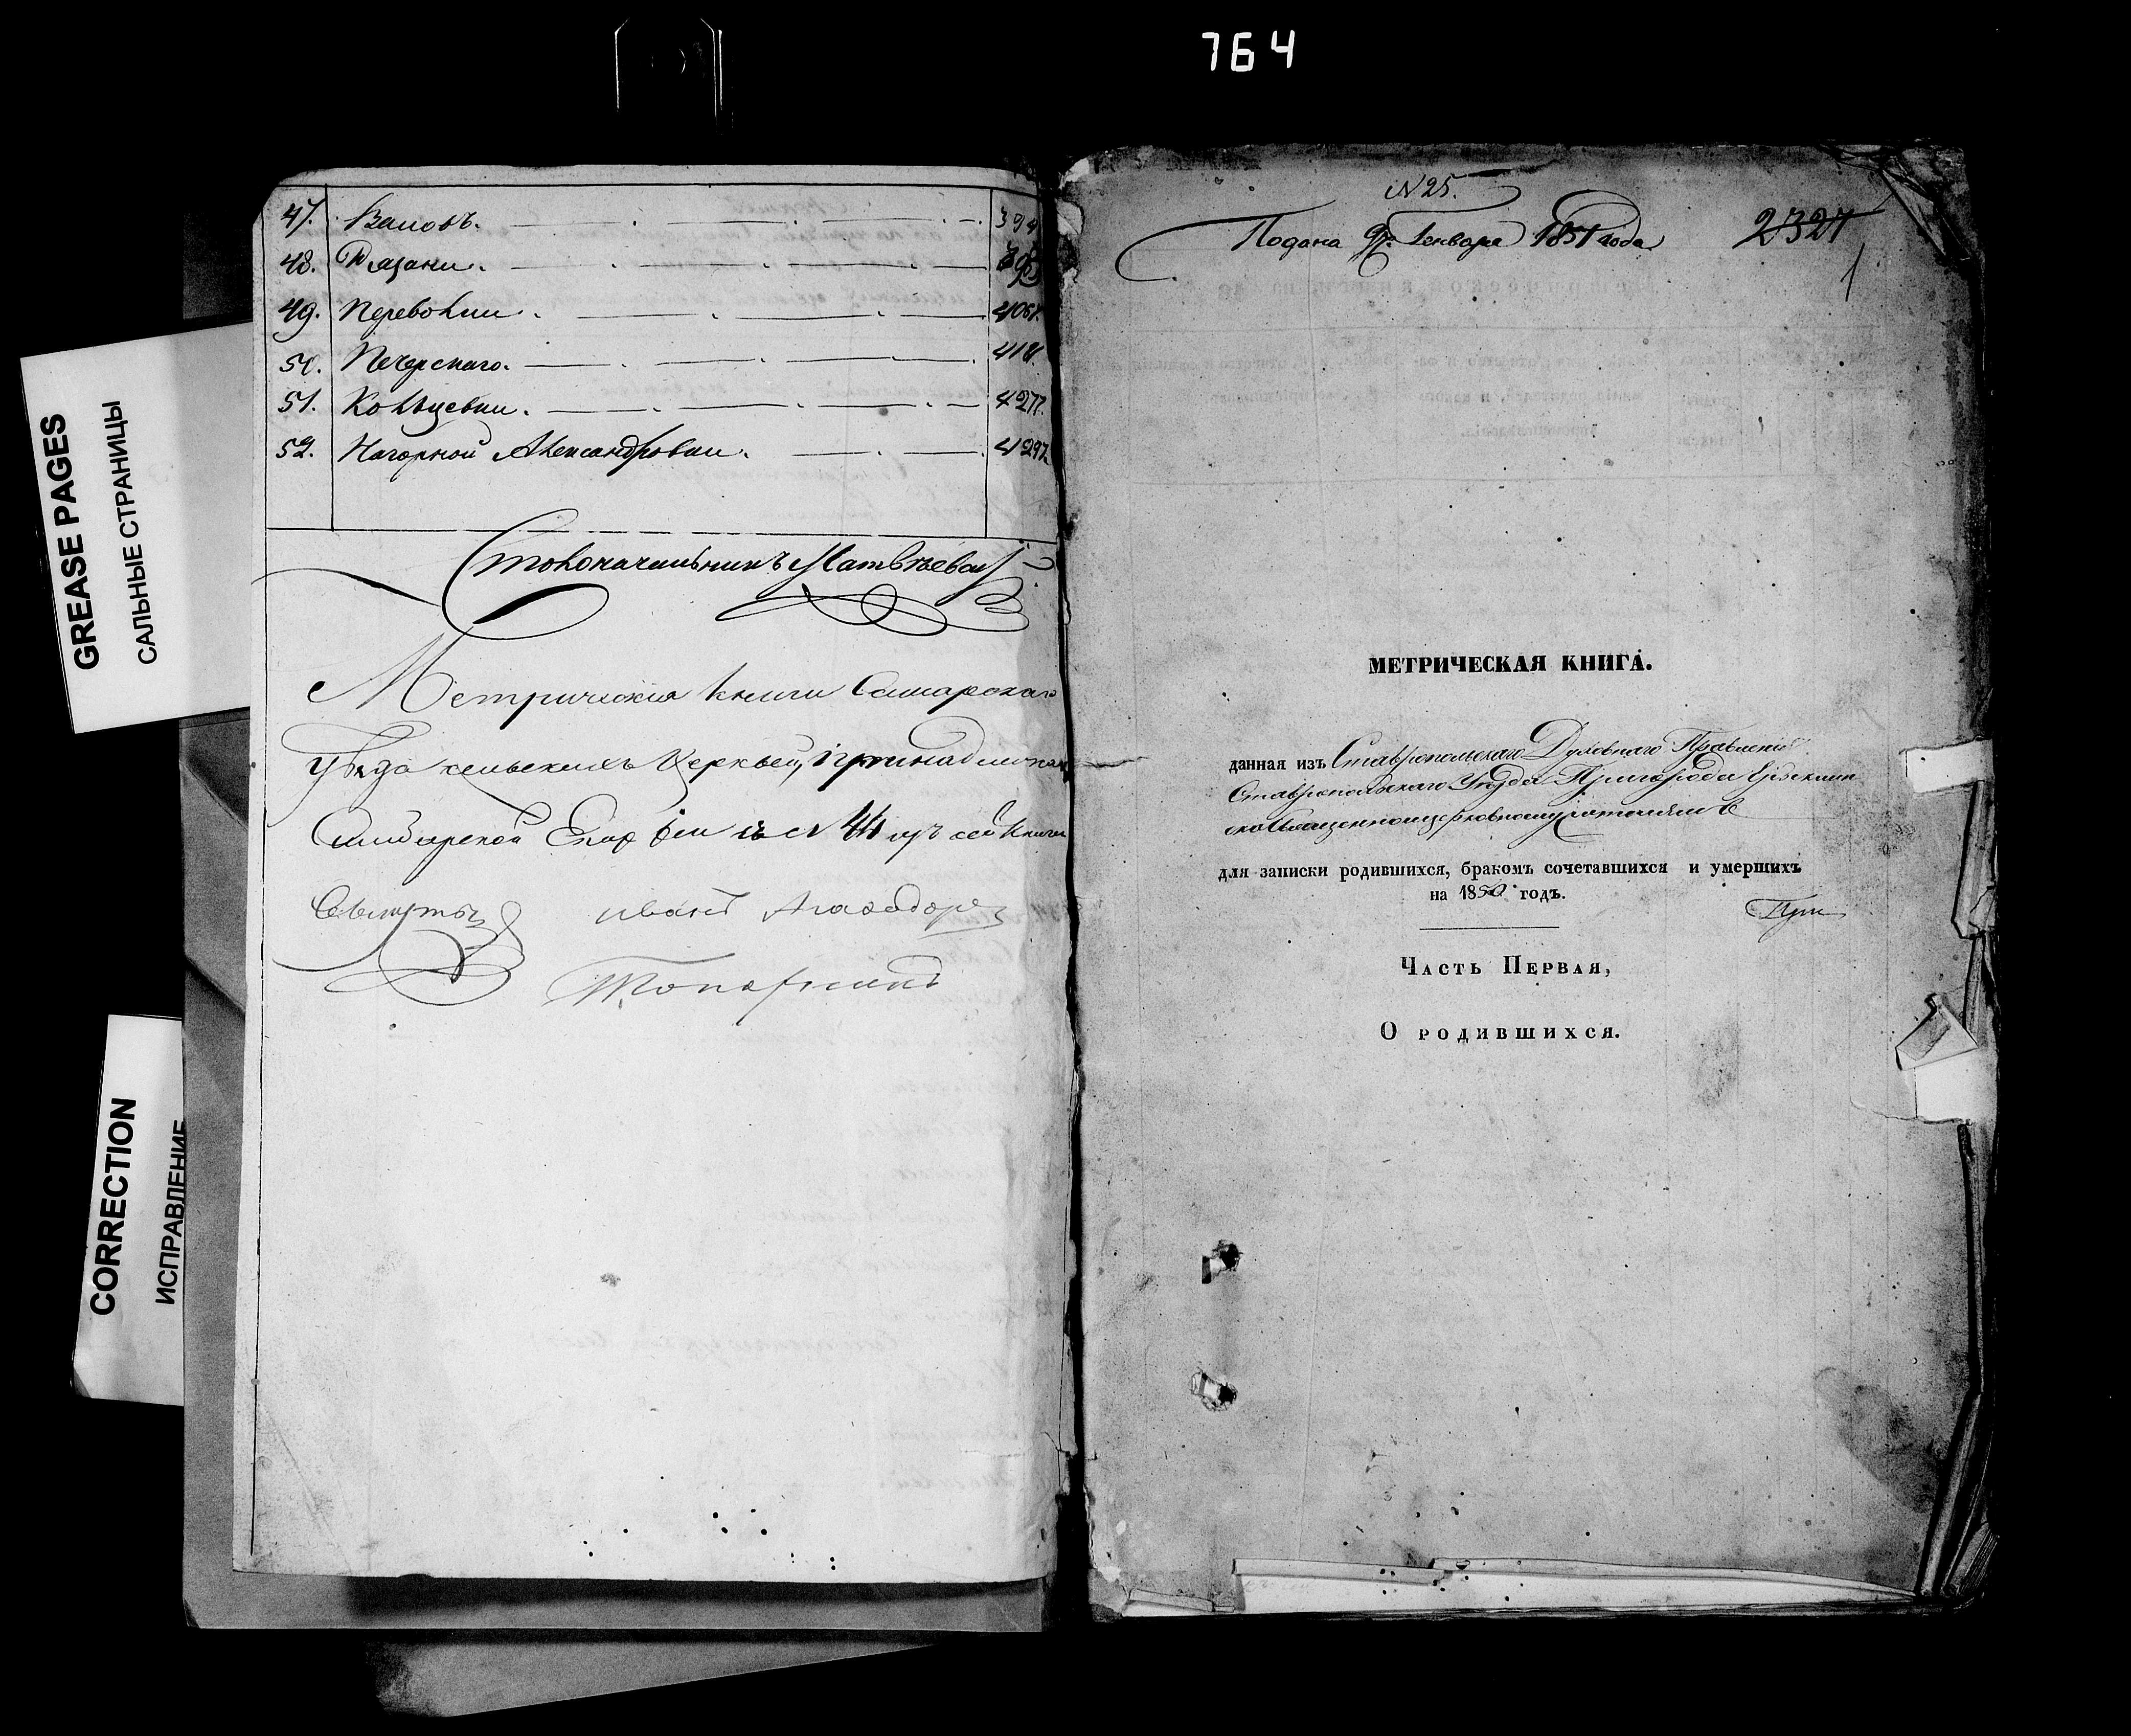 764
GREASE PAGES
САЛЬНЫЕ СТРАНИЦЫ
CORRECTION
ИСПРАВЛЕНИЕ
47. Валовъ. 394
48. Рязани.
49. Переволки. 406
50. Печерскаго. 418
51. Кольцевки. 427
52. Нагорной Александровки. 429
Столоначальникъ Матвѣевскій
Метрическія книги Самарскаго
уѣзда сельскихъ церквей, принадлежа
Симбирской Епархіи съ № 44 изъ сей книги
Иванъ
N 25.
Подана 9. Генваря 1851 года 2321
1
МЕТРИЧЕСКАЯ КНИГА.
данная изъ Ставропольскаго Духовнаго Правленія
Ставропольскаго Уѣзда Пригорода Ерыклин
ска Священноцерковнослужителямъ
для записки родившихся, бракомъ сочетавшихся и умершихъ
на 1850 годъ.
При
Часть Первая,
О родившихся.